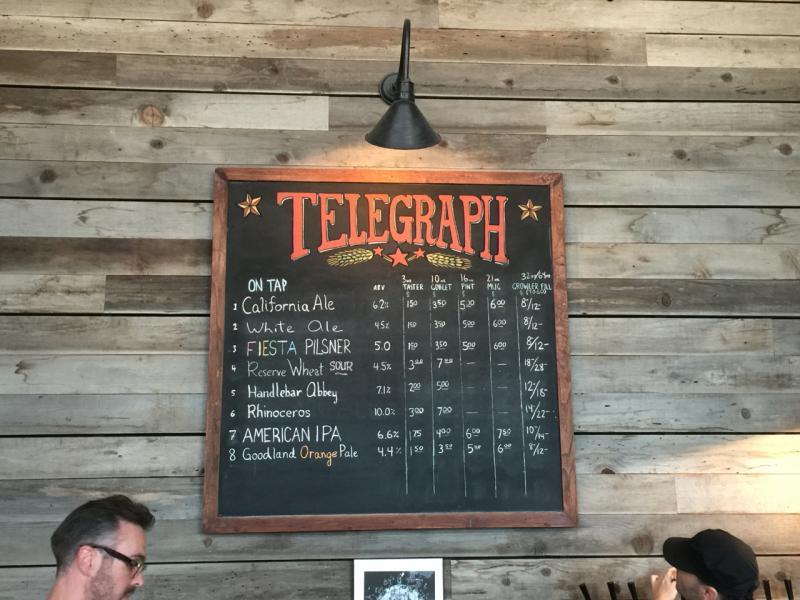 TELEGRAPH
ON TAP ABV 3oz TASTER 10oz GOBLET 16oz PINT 21oz MUG 32oz/64oz GROWLER FILL
1 California Ale 6.2% 150 350 500 600 8/12-
2 White Ale 4.5% 150 350 500 600 8/12-
3 FIESTA PILSNER 5.0 150 350 500 600 8/12-
4 Reserve Wheat SOUR 4.5% 300 700 — — 18/28-
5 Handlebar Abbey 7.1% 200 500 — — 12/18-
6 Rhinoceros 10.0% 300 700 — — 14/22-
7 AMERICAN IPA 6.6% 175 400 600 750 10/14-
8 Goodland Orange Pale 4.4% 150 350 500 600 8/12-